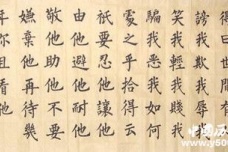 得曰世間
謗我欺我辱我
笑我輕我賤我
騙我惡我如何
處之乎拾得云
祇要忍他讓他
由他避他耐他
敬他由他不要
嫌棄他再待幾
年你且看他